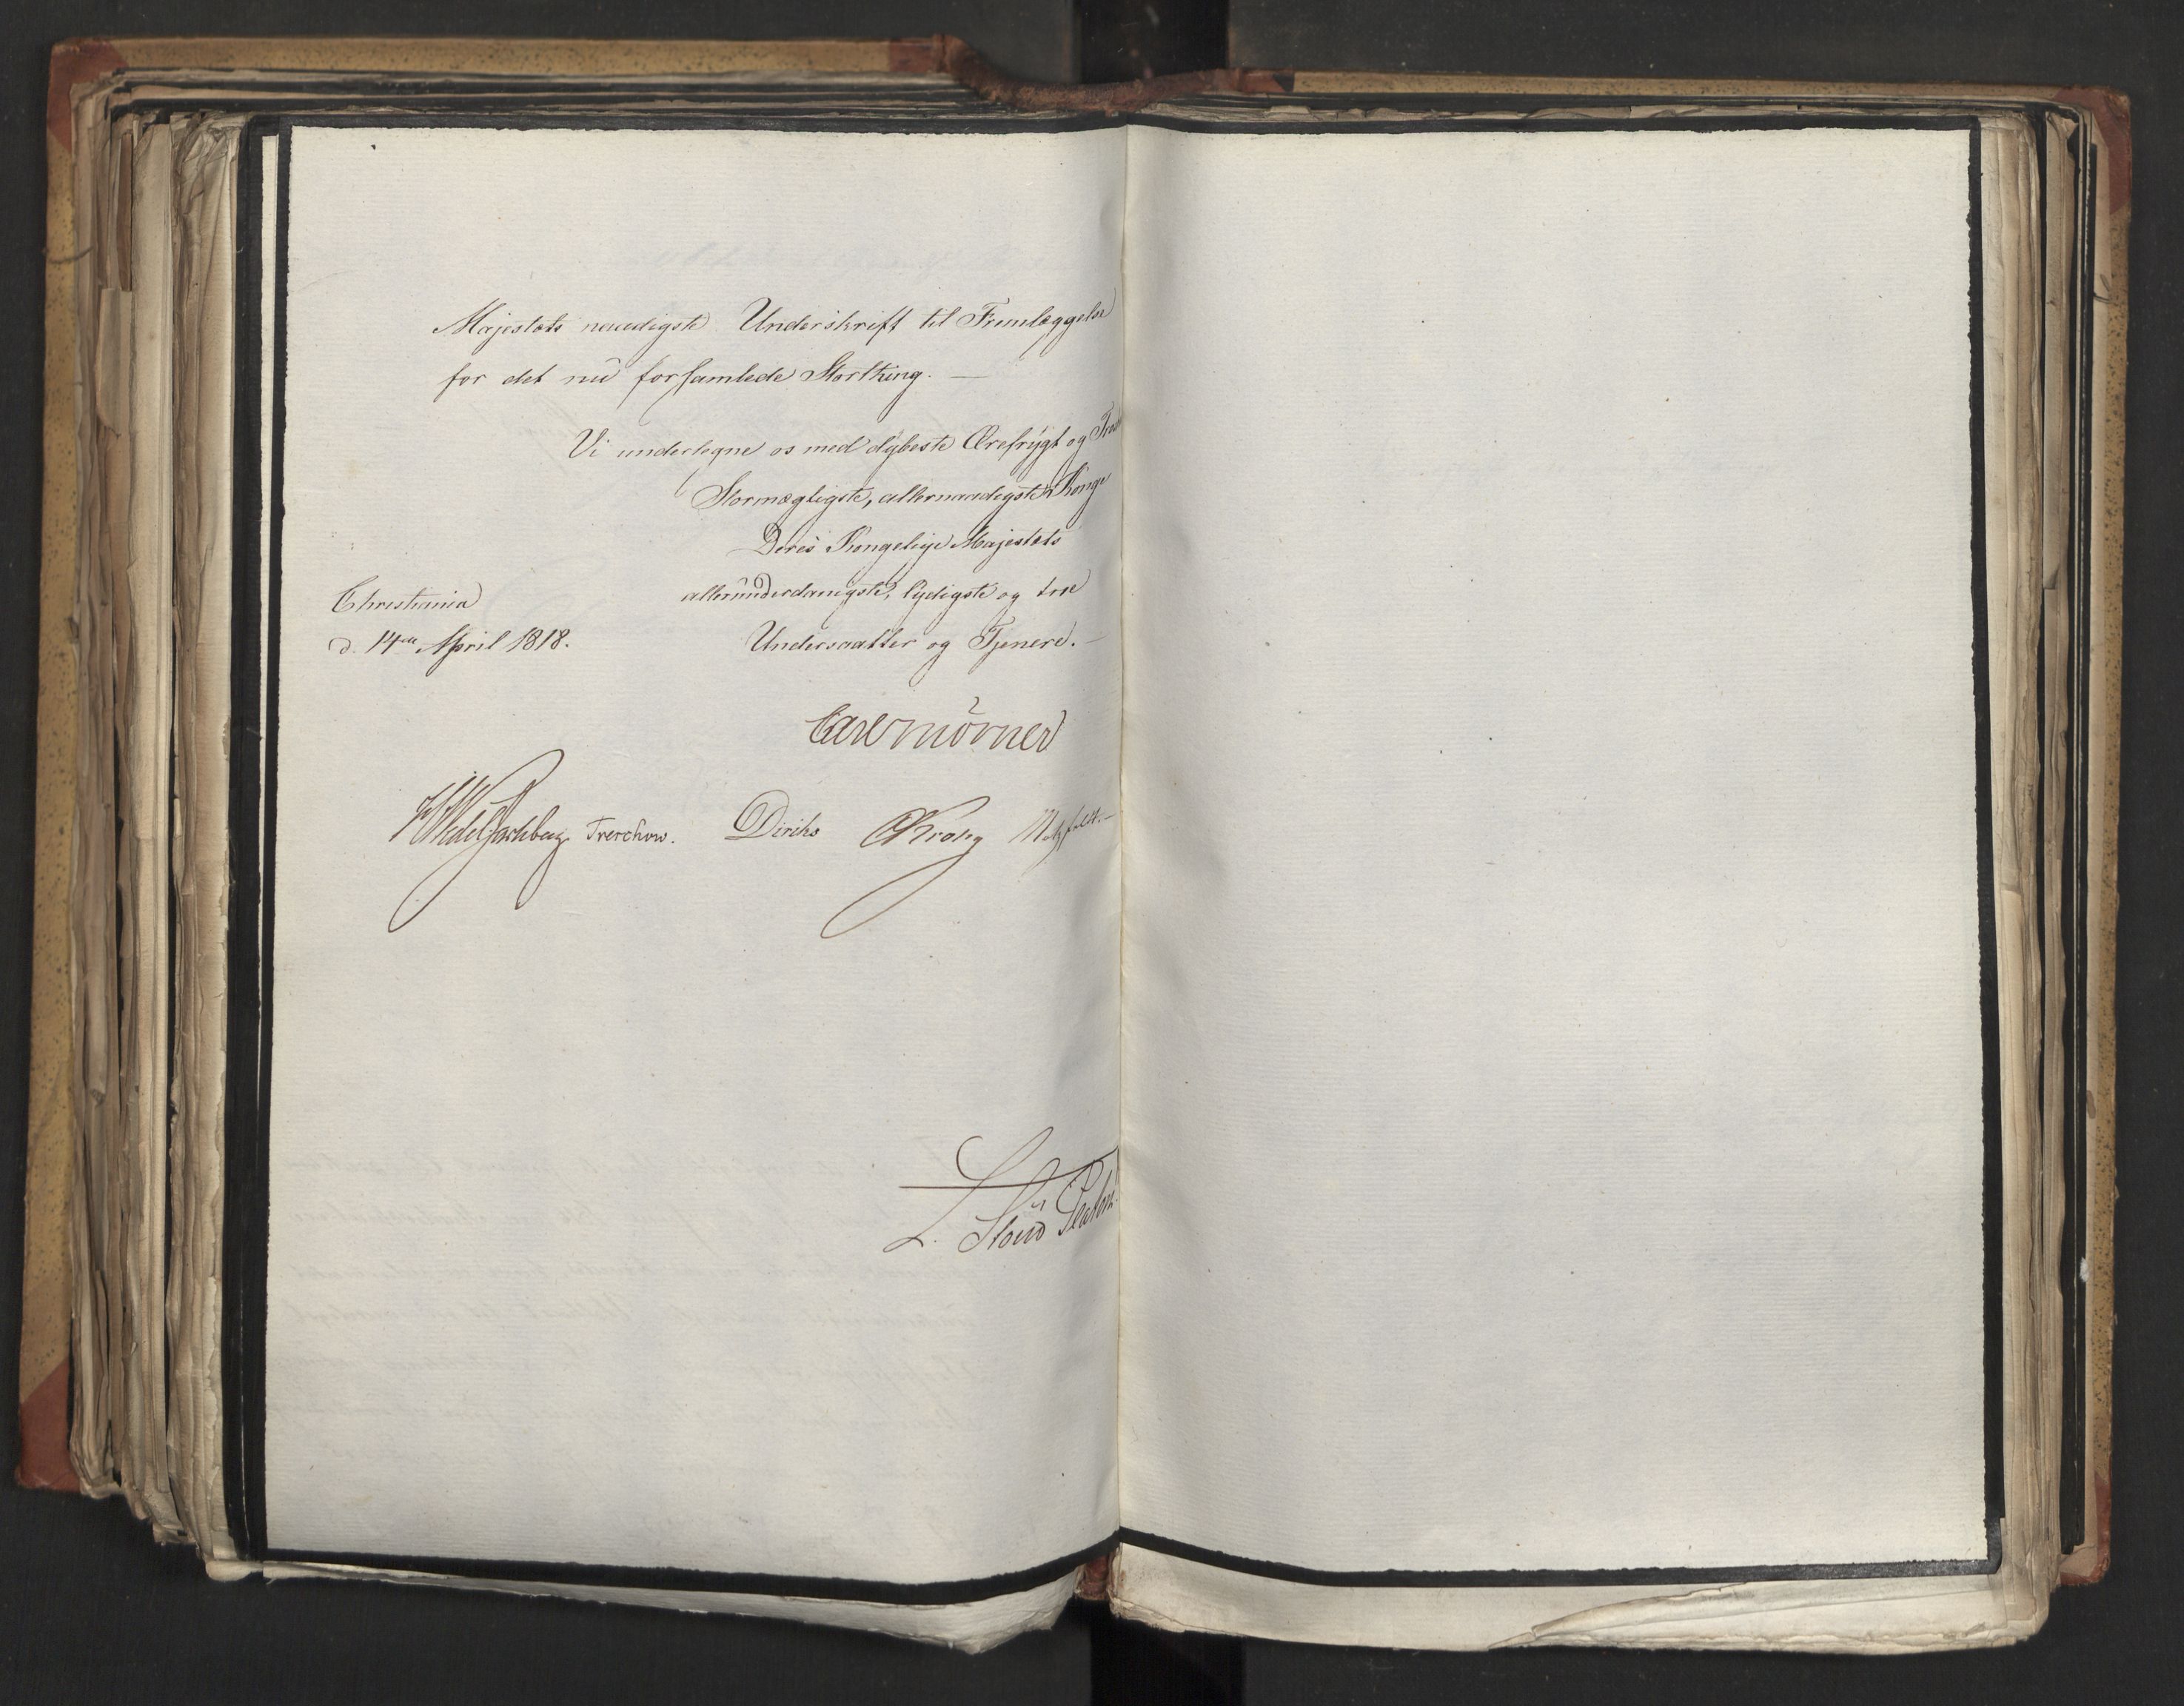 Majestæts naadigste Underskrift til Fremlæggelse
for det nu forsamlede Storthing. —
Vi undertegne os med dybeste Ærefrygt og
Stormægtigste, allernaadigste Konge
Deres Kongelige Majestæts
Christiania allerunderdanigste, lydigste og troe
d. 14de April 1818. Undersaatter og Tjenere. —
Carl Mörner
HWedel Jarlsberg Treschow. Diriks CKrohg Motzfeldt. —
L. Stoud Platou